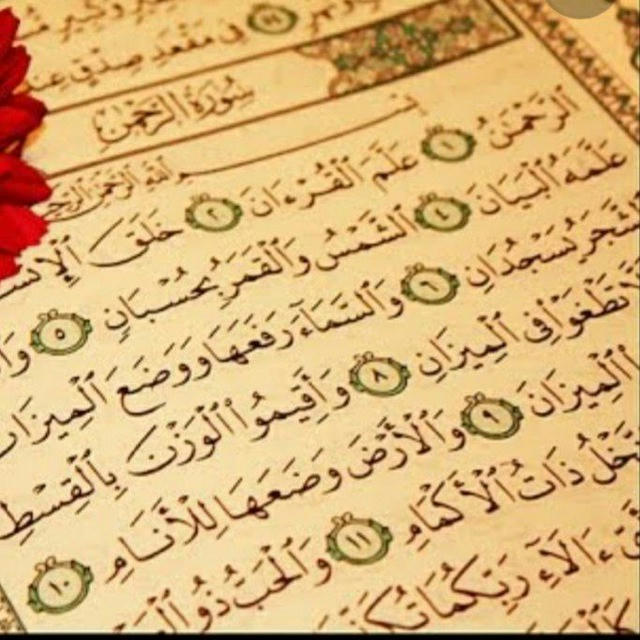 فِى مَقْعَدِ صِدْقٍ عِندَ
سُورَةُ الرَّحْمَٰن
بِسْمِ ٱللَّهِ ٱلرَّحْمَٰنِ ٱلرَّحِيمِ
ٱلرَّحْمَٰنُ ١ عَلَّمَ ٱلْقُرْءَانَ ٢ خَلَقَ ٱلْإِنسَـ
عَلَّمَهُ ٱلْبَيَانَ ٤ ٱلشَّمْسُ وَٱلْقَمَرُ بِحُسْبَانٍ ٥ وَٱ
لشَّجَرُ يَسْجُدَانِ ٦ وَٱلسَّمَآءَ رَفَعَهَا وَوَضَعَ ٱلْمِيزَانَ
تَطْغَوْا۟ فِى ٱلْمِيزَانِ ٨ وَأَقِيمُوا۟ ٱلْوَزْنَ بِٱلْقِسْطِ
ٱلْمِيزَانَ ٩ وَٱلْأَرْضَ وَضَعَهَا لِلْأَنَامِ ١٠
نَّخْلُ ذَاتُ ٱلْأَكْمَامِ ١١ وَٱلْحَبُّ ذُو ٱلْعَـ
ءَالَآءِ رَبِّكُمَا تُكَذِّ